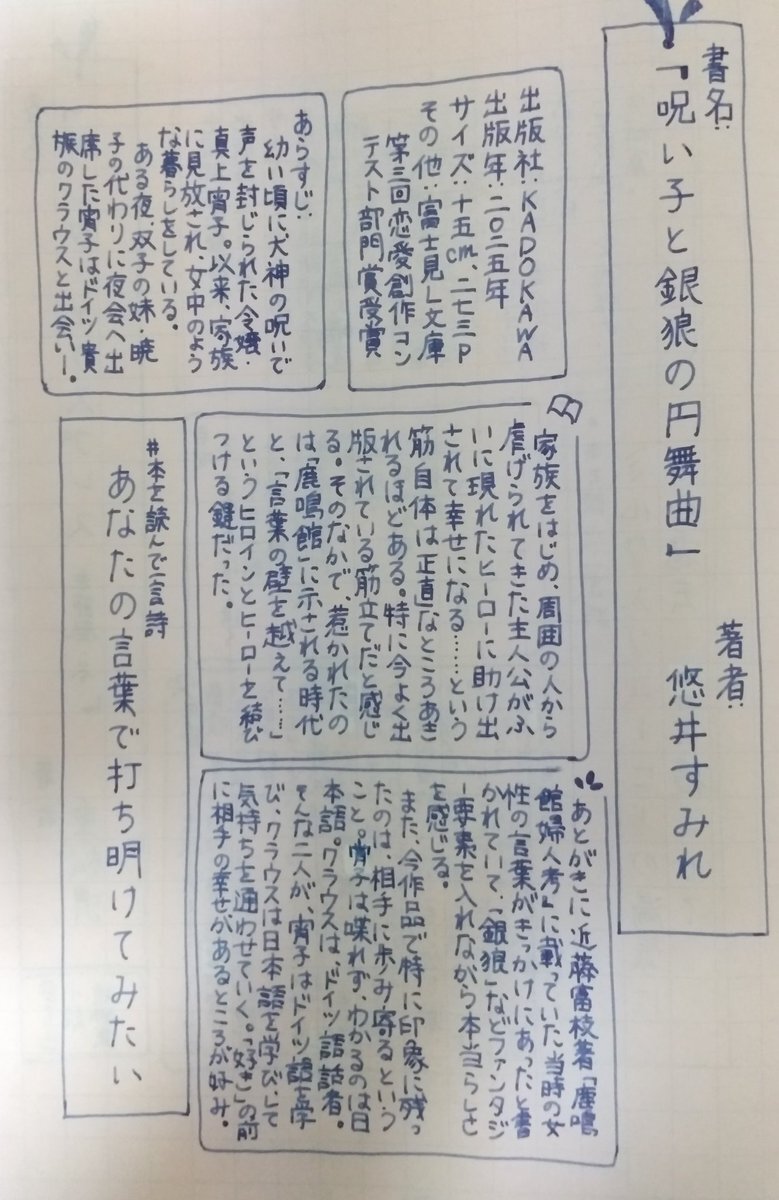 書名:
「呪い子と銀狼の円舞曲」
著者:
悠井すみれ
出版社:KADOKAWA
出版年:二〇二五年
サイズ:十五cm、二七三P
その他:富士見L文庫
第三回恋愛創作コン
テスト部門賞受賞
あらすじ:
幼い頃に、犬神の呪いで
声を封じられた令嬢・
真上宵子。以来、家族
に見放され、女中のよう
な暮らしをしている。
ある夜、双子の妹・暁
子の代わりに夜会へ出
席した宵子はドイツ貴
族のクラウスと出会い―。
家族をはじめ、周囲の人から
虐げられてきた主人公がふ
いに現れたヒーローに助け出
されて幸せになる……という
筋自体は正直なところあき
れるほどある。特に今よく出
版されている筋立てだと感じ
る。そのなかで、惹かれたの
は「鹿鳴館」に示される時代
と、「言葉の壁を越えて……」
というヒロインとヒーローを結び
つける鍵だった。
あとがきに近藤富枝著「鹿鳴
館婦人考』に載っていた当時の女
性の言葉がきっかけにあったと書
かれていて、「銀狼」などファンタジ
ー要素を入れながら本当らしさ
を感じる。
また、今作品で特に印象に残っ
たのは、相手に歩み寄るという
こと。宵子は喋れず、わかるのは日
本語。クラウスは、ドイツ語話者。
そんな二人が、宵子はドイツ語を学
び、クラウスは日本語を学びして
気持ちを通わせていく。「好き」の前
に相手の幸せがあるところが好み。
#本を読んで一言詩
あなたの言葉で打ち明けてみたい